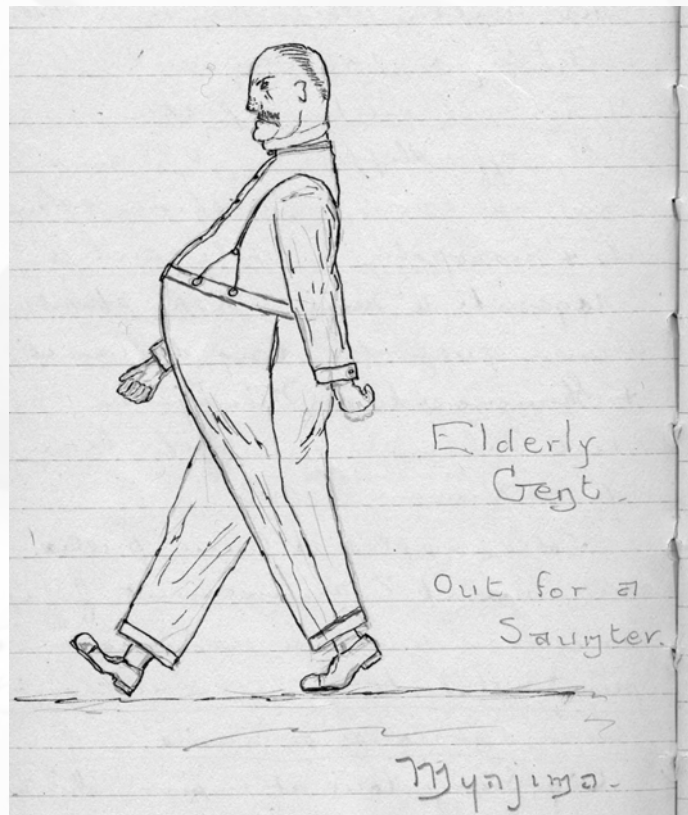 Elderly
Gent.
Out for a
Saunter.
Myajima.